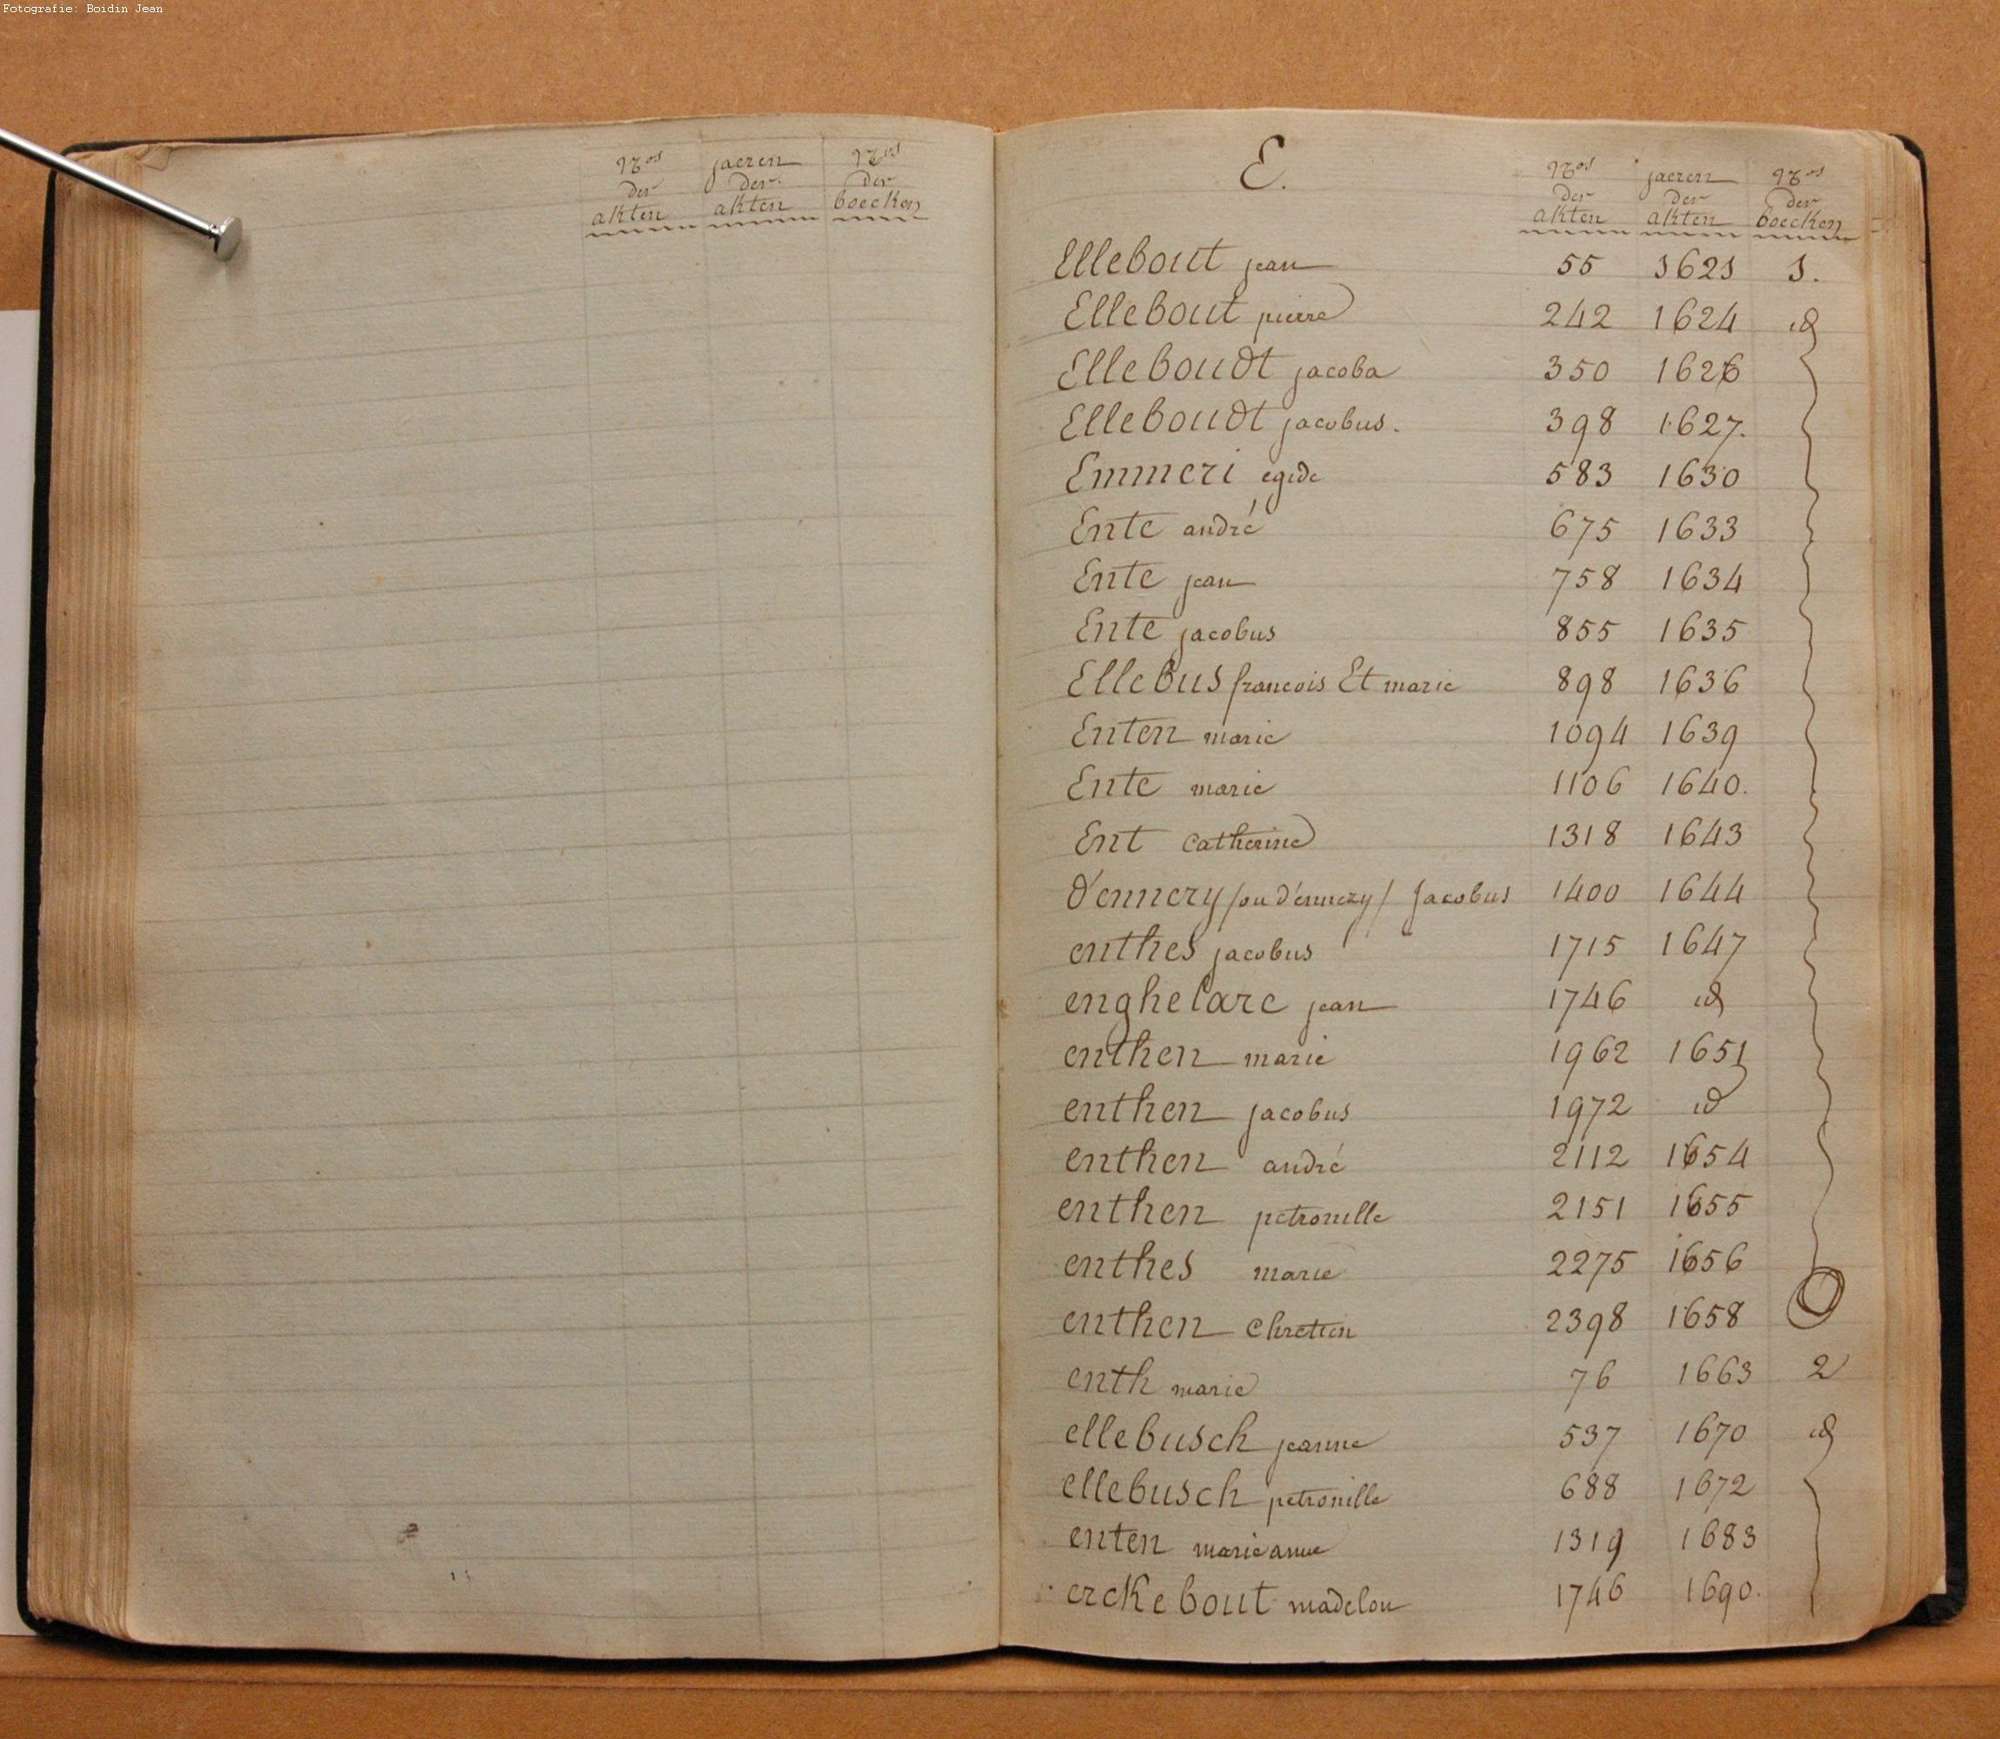 Fotografie: Boidin Jean
Nros jaeren Nros
der der der
akten akten boecken
E.
Nros jaeren Nros
der der der
akten akten boecken
Ellebout jean 55 1621 1.
Ellebout pierre 242 1624 id
Elleboudt jacoba 350 1626
Elleboudt jacobus. 398 1627.
Emmeri egide 583 1630
Ente andré 675 1633
Ente jean 758 1634
Ente jacobus 855 1635
Ellebus francois Et marie 898 1636
Enten marie 1094 1639
Ente marie 1106 1640.
Ent catherine 1318 1643
d'ennery /ou d'enmery/ Jacobus 1400 1644
enthes jacobus 1715 1647
enghelare jean 1746 id
enthen marie 1962 1651
enthen jacobus 1972 id
enthen andré 2112 1654
enthen petronille 2151 1655
enthes marie 2275 1656
enthen chretien 2398 1658
enth marie 76 1663 2
ellebusch jeanne 537 1670 id
ellebusch petronille 688 1672
enten marie anne 1319 1683
erckebout madelon 1746 1690.